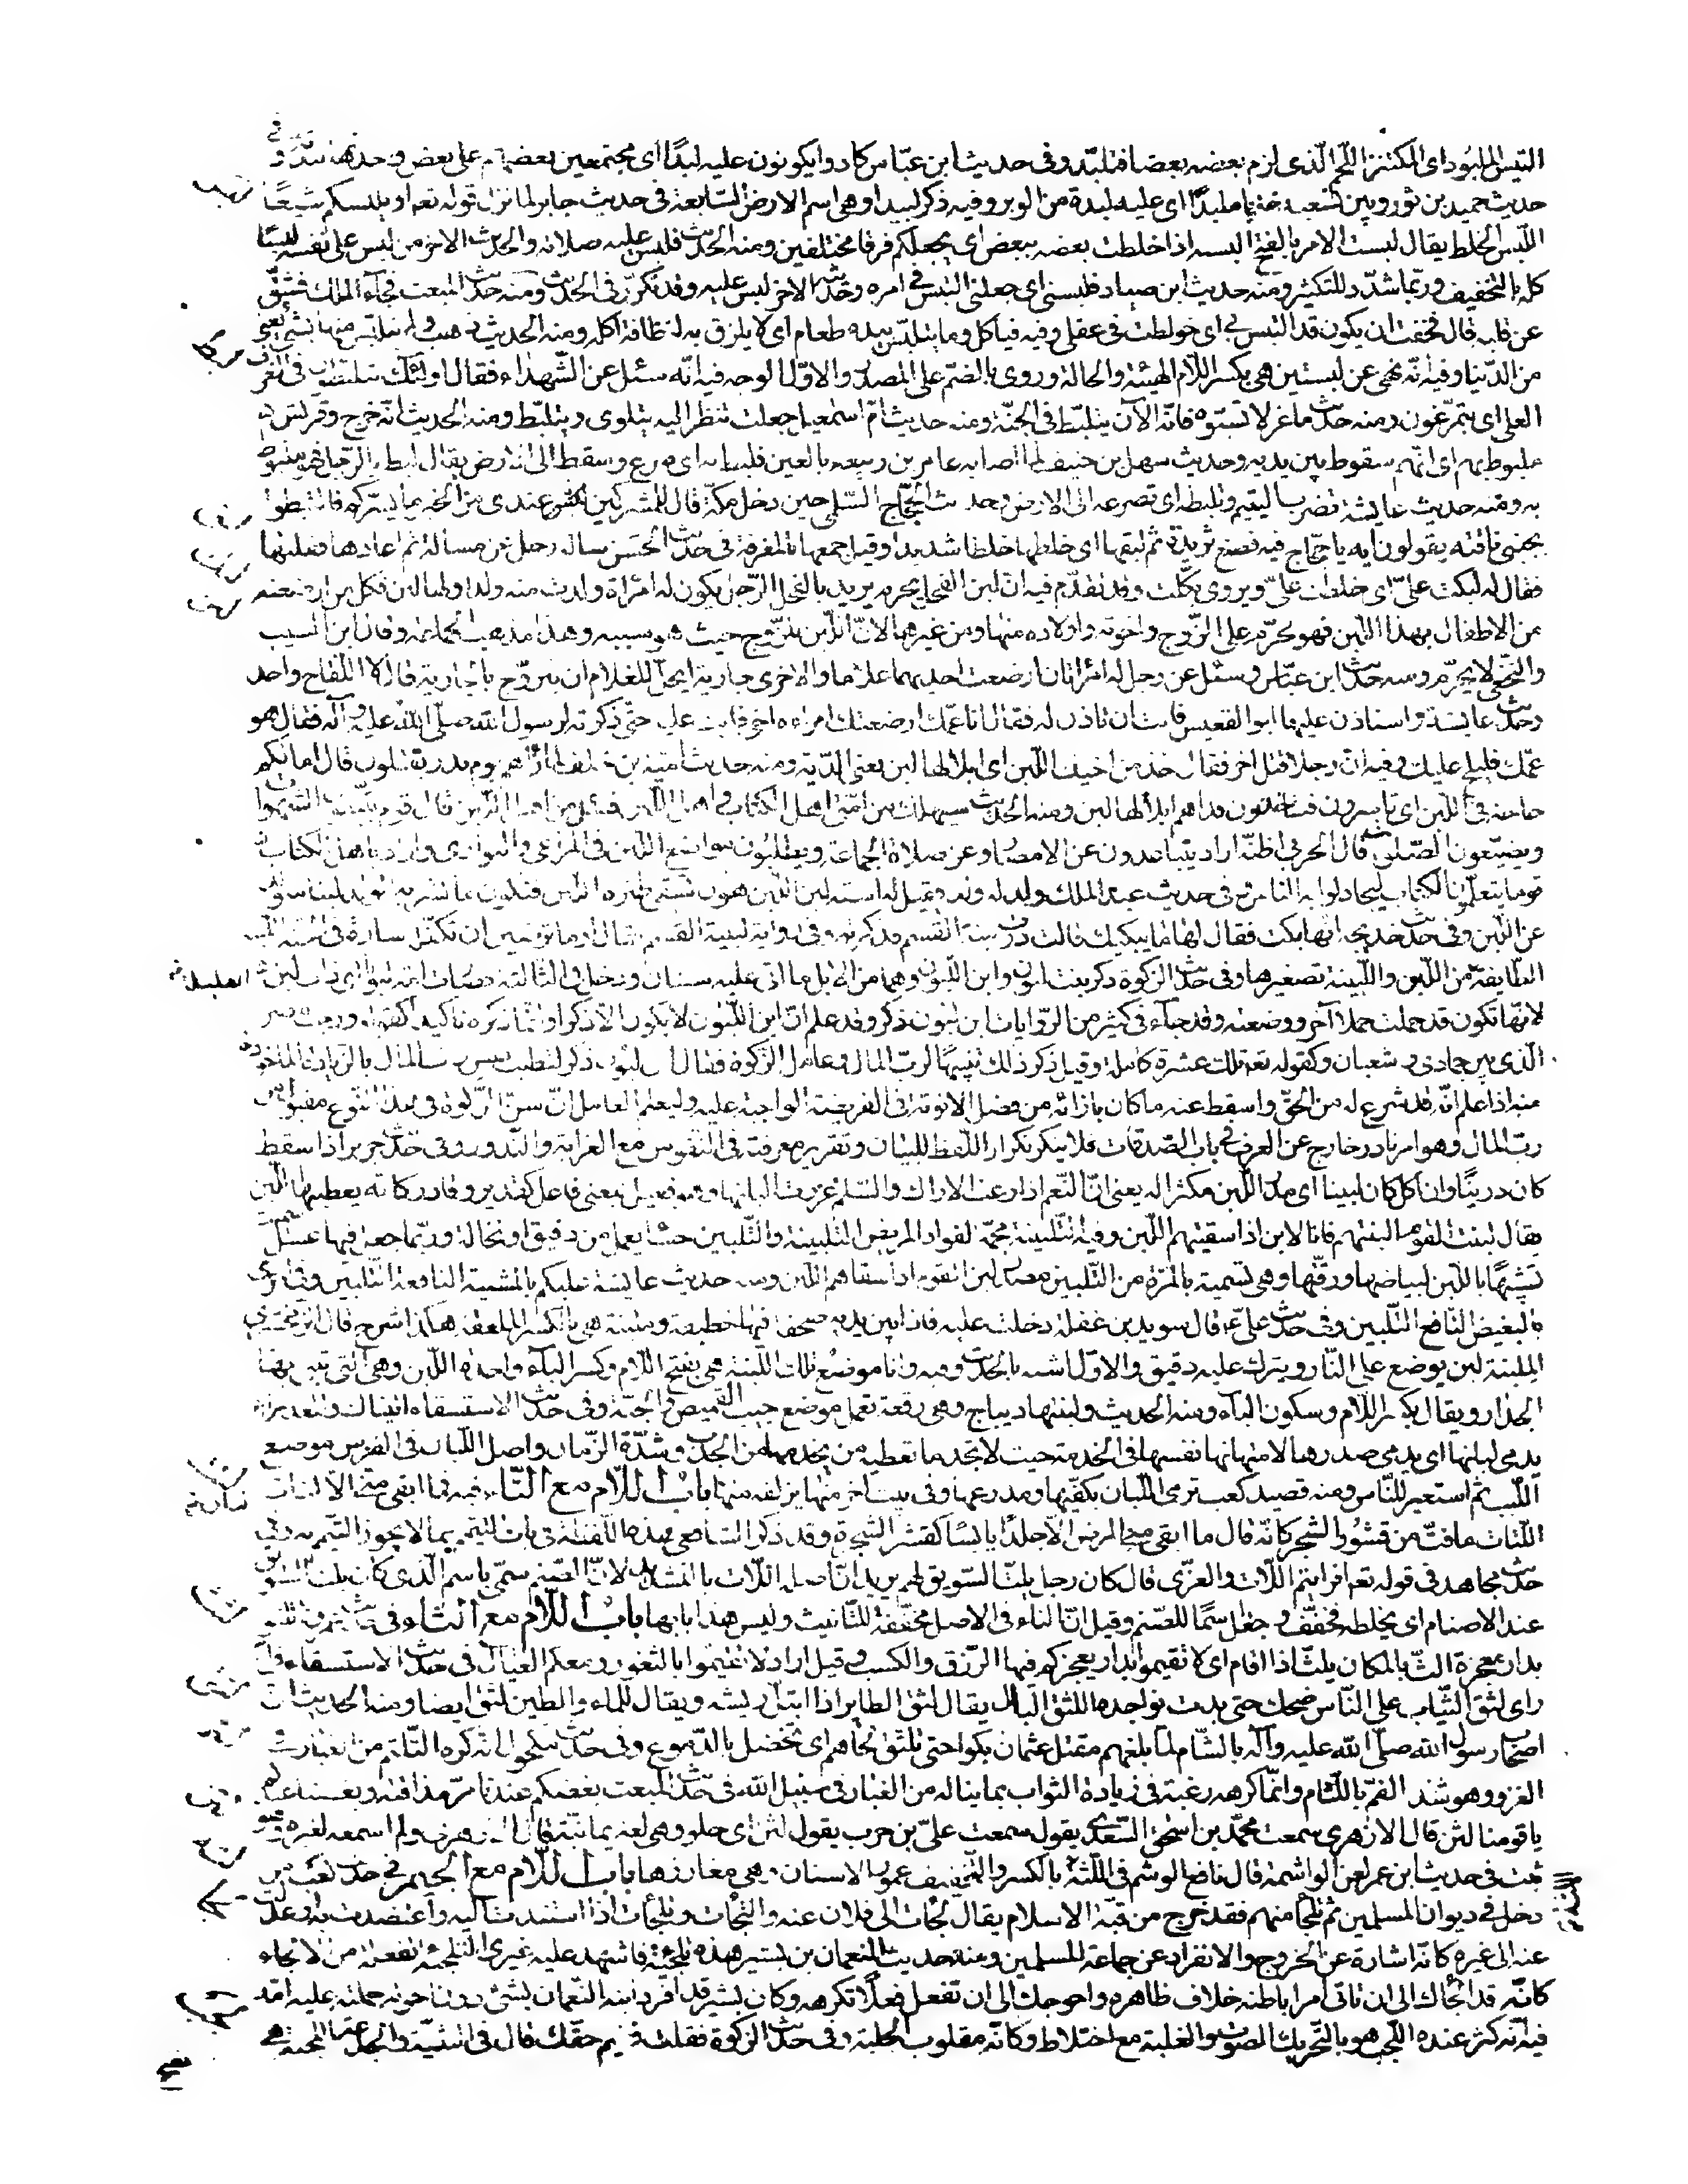 التيس الملبود اى المكتنز اللحم الّذى لزم بعضه بعضا فتلبّد وفى حديث ابن عبّاس كادوا يكونون عليه لبدًا اى مجتمعين بعضهم على بعض
حديث حميد بن ثور وبين خدبا ملبدًا اى عليه لبدة من الوبر وفيه ذكر لبيدا وهى اسم الارض السّابعة فى حديث جابر لما نزل قوله تعه او يلبسكم شيعًا
اللّبس الخلط يقال لبست الامر بالفتح البسه اذا خلطت بعضه ببعض اى يجعلكم فرقا مختلفين ومنه الحديث فلبس عليه صلاته والحديث الاخر من لبس على نفسه لبسًا
كله بالتخفيف وربّما شدّد للتكثير ومنه حديث ابن صياد فلبسنى اى جعلنى التبس فى امره وحديثه الاخر لبس عليه وقد تكرّر فى الحديث ومنه حديث المبعث فجآء الملك فشقّ
عن قلبه قال فخفت ان يكون قد التبس بى اى خولطت فى عقلى وفيه فياكل وما يتلبّس بيده طعام اى لا يلزق به لنظافة اكله ومنه الحديث ذهب ولم يتلبّس منها بشئ يعنى
من الدّنيا وفيه انّه نهى عن لبستين هى بكسر اللّام الهيئة والحالة وروى بالضمّ على المصدر والاوّل الوجه فيه انّه سئل عن الشّهداء فقال اولئك يتلبّطون فى الغرف
العلى اى يتمرّغون ومنه حديث ماعز لا تسبّوه فانّه الآن يتلبّط فى الجنّة ومنه حديث امّ اسمعيل جعلت تنظر اليه يتلوى ويتلبّط ومنه الحديث انّه خرج وقريش
ملبوط بهم اى انّهم سقوط بين يديه وحديث سهل بن حنيف لما اصابه عامر بن ربيعه بالعين فلبط به اى صرع وسقط الى الارض يقال لبط بالرّجل فهو ملبوط
به ومنه حديث عايشة تضرب اليتيم وتلبطه اى تصرعه الى الارض وحديث الحجّاج السّلمى حين دخل مكّة قال للمشركين ليس عندى من الخبر ما يسرّكم فالتبطوا
بجنبى ناقته يقولون ايه يا حجّاج فيه فصنع ثريدة ثم لبقها اى خلطها خلطا شديدا وقيل جمعها بالمغرفة فى حديث الحسن ساله رجل عن مسألة ثم اعادها فقلبها
فقال له لبكت علىّ اى خلطت علىّ ويروى بكّلت وقد تقدّم فيه انّ لبن الفحل يحرم يريد بالفحل الرّجل يكون له امرأة ولدت منه ولدا ولها لبن فكل من ارضعته
من الاطفال بهذا اللّبن فهو محرّم على الزّوج واخوته واولاده منها ومن غيرها لانّ اللّبن للزّوج حيث هو سببه وهذا مذهب الجماعة وقال ابن المسيب
والنّخعى لا يحرّم ومنه حديث ابن عبّاس وسئل عن رجل له امرأتان ارضعت احديهما غلاما والاخرى جارية ايحلّ للغلام ان يتزوّج بالجارية قال لا اللّقاح واحد
وحديث عايشة واستاذن عليها ابو القعيس فابت ان تاذن له فقال انا عمّك ارضعتك امراة اخى فابت عليه حتّى ذكرته لرسول الله صلّى الله عليه وآله فقال هو
عمّك فليلج عليك وفيه انّ رجلا قتل اخر فقال خذ من اخيك اللّبن اى ابلا لها لبن يعنى الدّية ومنه حديث اميّة بن خلف لما رآهم يوم بدر يقتلون قال اما لكم
حاجة فى اللّبن اى تاسرون فتاخذون فداهم ابلا لها لبن ومنه الحديث سيهلك من امّتى اهل الكتاب واهل اللّبن فسئل من اهل اللّبن قال قوم يتّبعون الشّهوات
ويضيّعون الصّلوة قال الحربى اظنّه اراد يتباعدون عن الامصار وعن صلاة الجماعة ويطلبون مواضع اللّبن فى المراعى والبوادى واراد باهل الكتاب
قوما يتعلّمون الكتاب ليجادلوا به النّاس وفى حديث عبد الملك ولد له ولد فقيل له اسقه لبن اللّبن هو ان
عن اللّبن وفى حديث خديجة انّها بكت فقال لها ما يبكيك قالت درّت لبنة القسم فذكرته وفى رواية لبينة القسم فقال اما ترضين ان تكفّله سارة فى الجنّة اللّبنة
الطّايفة من اللّبن واللّبينة تصغيرها وفى حديث الزكوة ذكر بنت لبون وابن اللّبون وهما من الابل ما اتى عليه سنتان ودخل فى الثّالثة فصارت امّه لبونا اى ذات لبن
لانّها تكون قد حملت حملا آخر ووضعته وقد جآء فى كثير من الرّوايات ابن لبون ذكر وقد علم انّ ابن اللّبون لا يكون الّا ذكرا وانّما ذكره تاكيدا كقوله ورجب مضر
الّذى بين جمادى وشعبان وكقوله تعه تلك عشرة كاملة وقيل ذكر ذلك تنبيهًا لربّ المال وعامل الزّكوة فقال ابن لبون ذكر لتطيب نفس ربّ المال بالزّيادة الماخوذة
منه اذا علم انّه قد شرع له من الحقّ واسقط عنه ما كان بازائه من فضل الانوثة فى الفريضة الواجبة عليه وليعلم العامل انّ سنّ الزّكوة فى هذا النّوع مقبول من
ربّ المال وهو امر نادر خارج عن العرف فى باب الصّدقات فلا ينكر تكرار اللّفظ للبيان وتقرير معرفته فى النّفوس مع الغرابة والنّدور وفى حديث جرير اذا سقط
كان درينًا وان اكل كان لبينا اى مدرّا للّبن مكثرا له يعنى انّ النّعم اذا رعت الاراك والسّلم غزرت البانها وهو فعيل بمعنى فاعل كقدير وقادر كانّه يعطيها اللّبن
يقال لبنت القوم البنهم فانا لابن اذا سقيتهم اللّبن وفيه التّلبينة مجمّة لفؤاد المريض التّلبينة والتّلبين حساء يعمل من دقيق او نخالة وربّما جعل فيها عسل
تشبيهًا باللّبن لبياضها ورقّتها وهى تسمية بالمرّة من التّلبين مصدر لبن القوم اذا سقاهم اللّبن ومنه حديث عايشة عليكم بالمشنية النافعة التّلبين وفى اخرى
بالبغيض النّافع التّلبين وفى حديث علىّ ع قال سويد بن غفلة دخلت عليه فاذا بين يديه صحفة فيها خطيفة وملبنة هى بالكسر الملعقة هكذا شرح قال الزّمخشرى
الملبنة لبن يوضع على النّار ويترك عليه دقيق والاوّل اشبه بالحديث وفيه وانا موضع تلك اللّبنة هى بفتح اللّام وكسر البآء واحدة اللّبن وهى الّتى يبنى بها
الجدار ويقال بكسر اللّام وسكون البآء ومنه الحديث ولبنتها ديباج وهى رقعة تعمل موضع جيب القميص والجبّة وفى حديث الاستسقاء اتيناك والعذراء
يدمى لبانها اى يدمى صدرها لامتهانها نفسها فى الخدمة حيث لا تجد ما تعطيه من يخدمها من الجدب وشدّة الزّمان واصل اللّبان فى الفرس موضع
اللّبب ثم استعير للنّاس ومنه قصيد كعب ترمى اللّبان بكفّيها ومدرعها وفى بيت اخر منها يزلقه منها باب اللّام مع التّاء فيه فما ابقى منّى الّا لتاتا
اللّتات مافتّ من قشور الشجر كانّه قال ما ابقى منّى المرض الّا جلدًا يابسًا كقشر الشجرة وقد ذكر الشافعى هذه اللّفظة فى باب التيمّم بما لا يجوز التّيمّم به وفى
حديث مجاهد فى قوله تعه افرايتم اللّات والعزّى قال كان رجل يلتّ السّويق لهم يريد انّ اصله اللّات بالتشديد لانّ الصّنم سمّى باسم الّذى كان يلتّ السّويق
عند الاصنام اى يخلطه فخفّف وجعل اسمًا للصّنم وقيل انّ التاء فى الاصل مخفّفة للتّانيث وليس هذا بابها باب اللّام مع الثّاء فى حديث عمر ولا تلثّوا
بدار معجزة الثّ بالمكان يلثّ اذا اقام اى لا تقيموا بدار يعجزكم فيها الرّزق والكسب وقيل اراد لا تقيموا بالثغور ومعكم العيال فى حديث الاستسقاء فلمّا
راى لثق الثّياب على النّاس ضحك حتى بدت نواجذه اللثق البلل يقال لثق الطاير اذا ابتلّ ريشه ويقال للماء والطين لثق ايضا ومنه الحديث انّ
اصحاب رسول الله صلّى الله عليه وآله بالشّام لمّا بلغهم مقتل عثمان بكوا حتى تلثّق لحاهم اى تخضل بالدّموع وفى حديث مكحول انّه كره التّلثّم من الغبار فى
الغزو وهو شدّ الفمّ باللّثام وانّما كرهه رغبة فى زيادة الثواب بما يناله من الغبار فى سبيل الله فى حديث المبعث بغضكم عندنا مرّ مذاقته وبغضنا عندكم
يا قومنا لثن قال الازهرى سمعت محمّد بن اسحق السّعدى يقول سمعت علىّ بن حرب يقول لثن اى حلو وهى لغة يمانيّة قال الازهرى ولم اسمعه لغيره وهو
ثبت فى حديث ابن عمر لعن الواشمة قال نافع الوشم فى اللّثة بالكسر والتّخفيف عمور الاسنان وهى مغارزها باب اللّام مع الجيم فى حديث كعب من
دخل فى ديوان المسلمين ثم تلجّا منهم فقد خرج من قبّة الاسلام يقال لجأت الى فلان عنه والتجأت وتلجّأت اذا استندت اليه واعتضدت به او عدلت
عنه الى غيره كانّه اشارة عن الخروج والانفراد عن جماعة المسلمين ومنه حديث النعمان بن بشير هذه تلجئة فاشهد عليه غيرى التّلجئة تفعلة من الالجاء
كانّه قد الجأك الى ان تاتى امرا باطنه خلاف ظاهره واحوجك الى ان تفعل فعلًا تكرهه وكان بشير قد افرد ابنه النّعمان بشئ دون اخوته حملته عليه امّه
فيه انّه كثر عنده اللّجب هو بالتّحريك الصوت والغلبة مع اختلاط وكانّه مقلوب الجلبة وفى حديث الزكوة فقلت فيم حقّك قال فى الثنيّة والجذعة اللّجبة هى